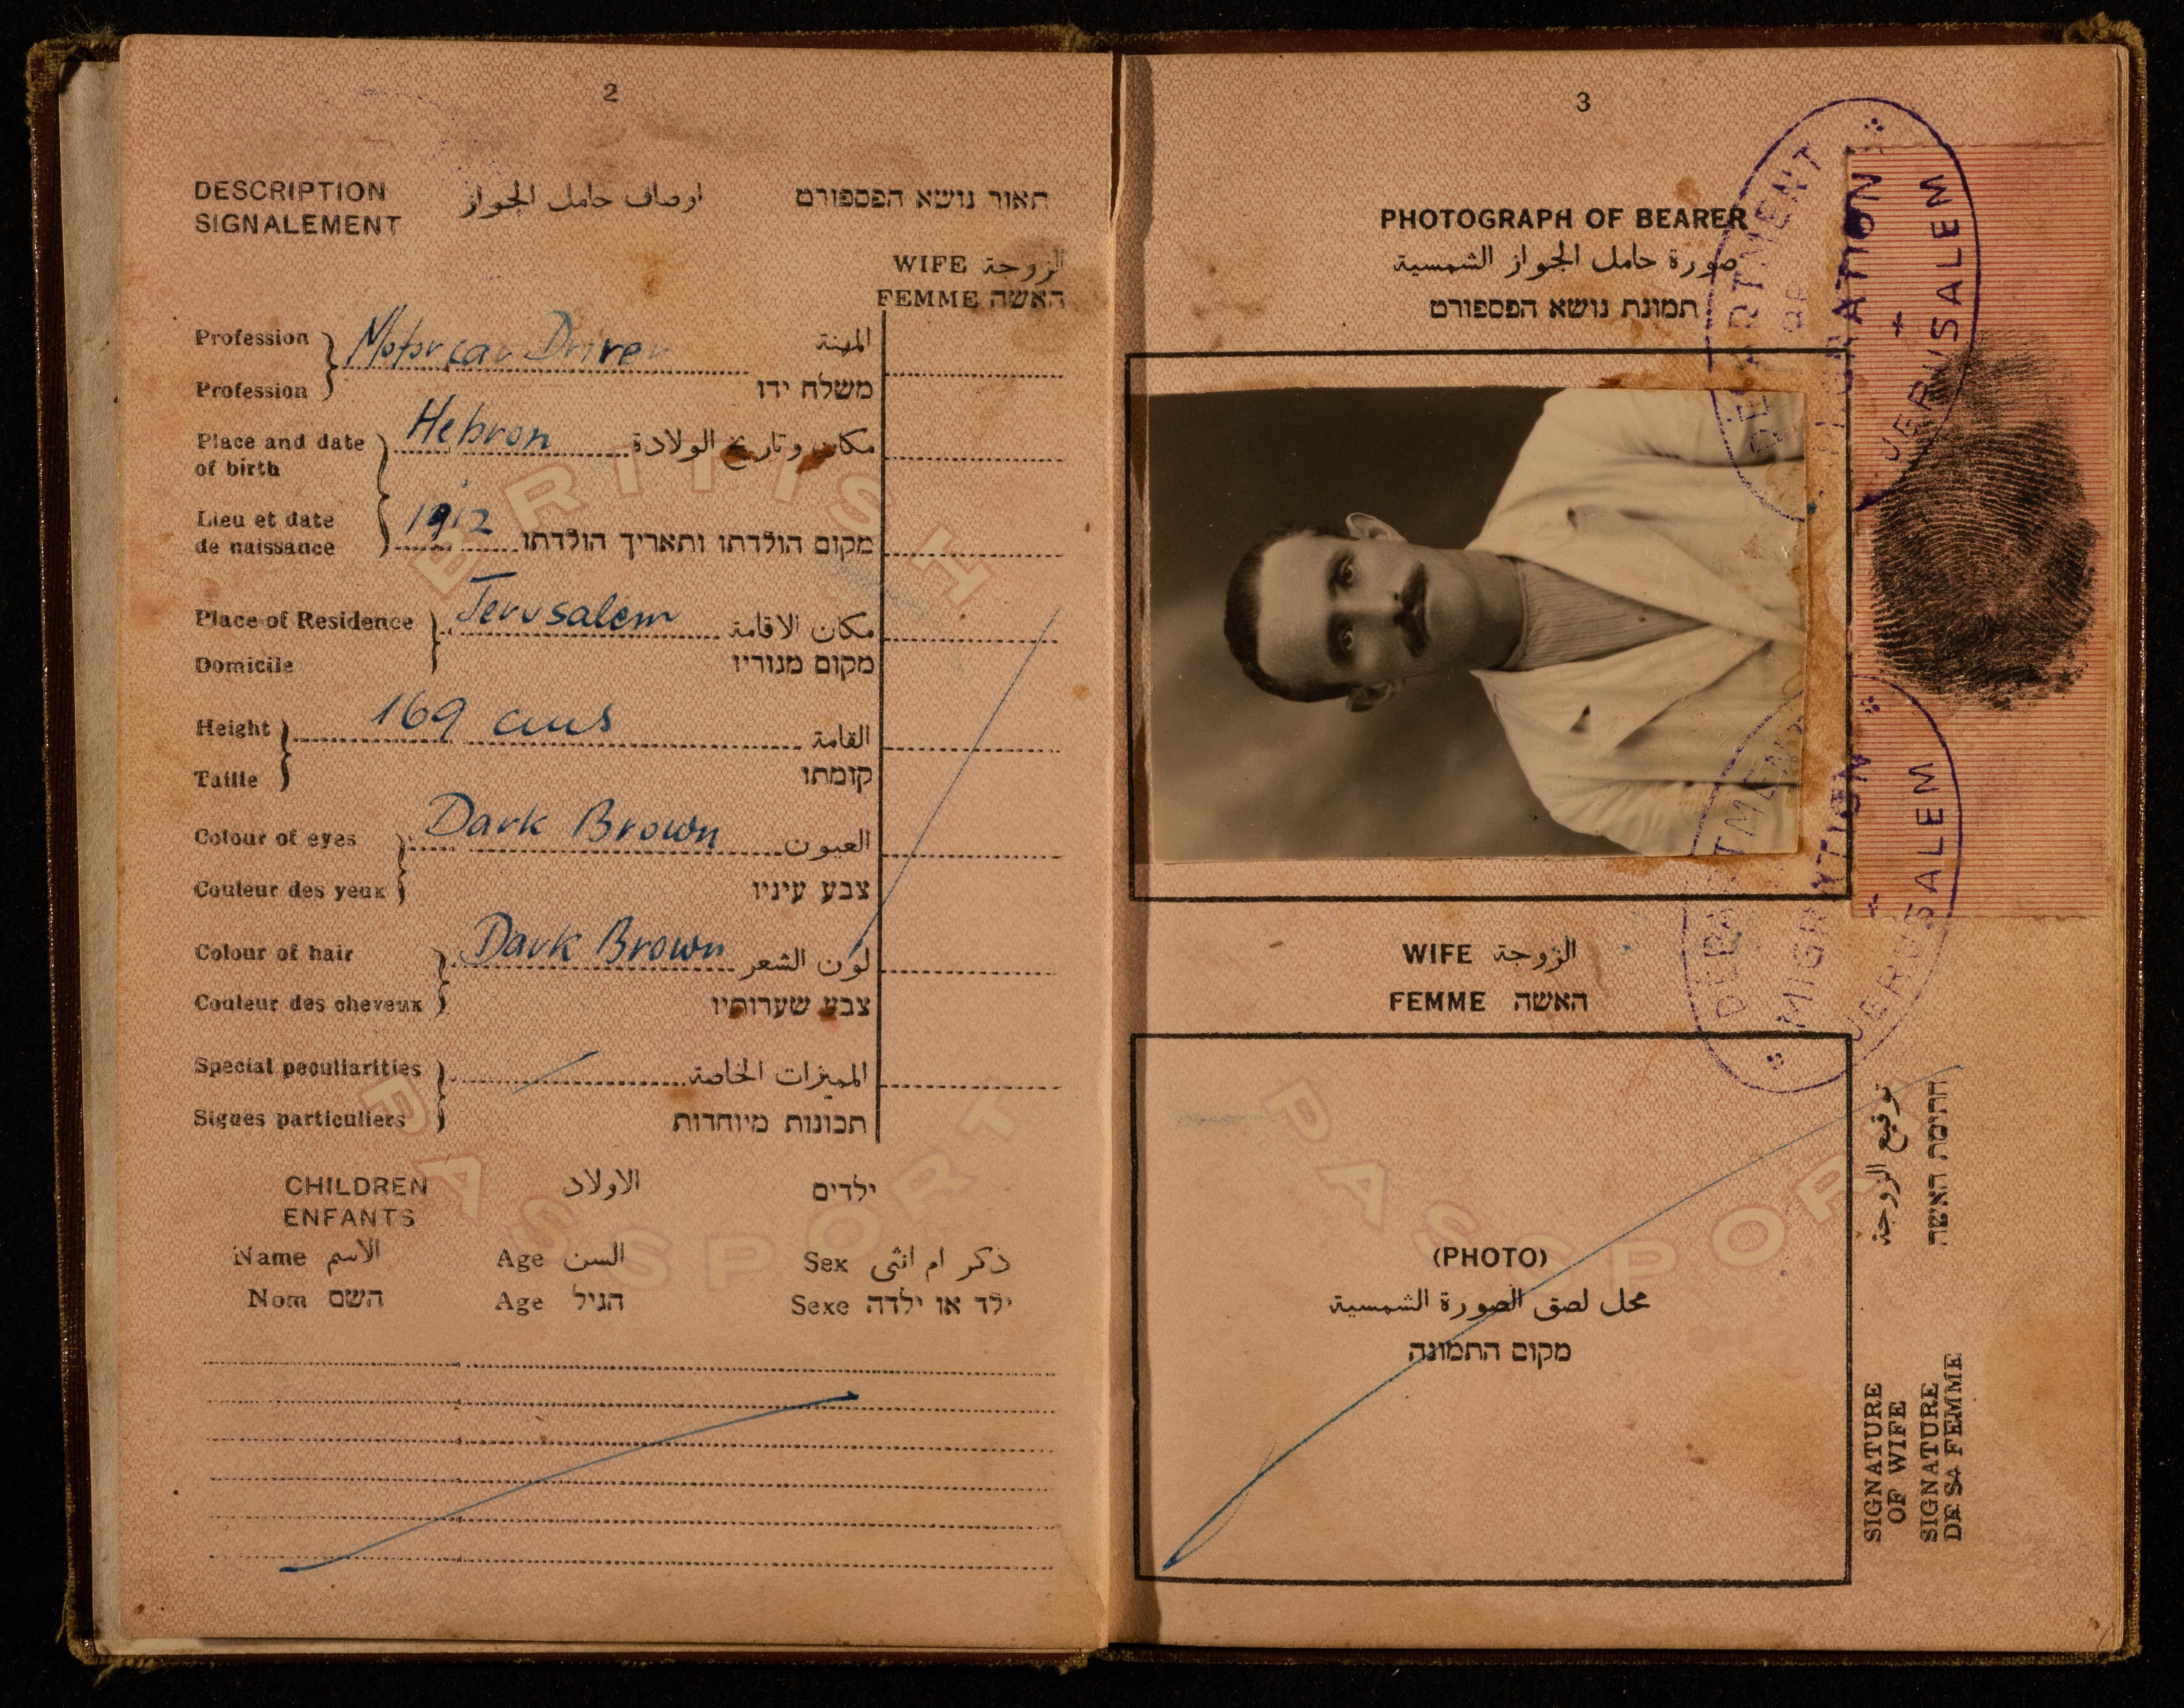 2
DESCRIPTION اوصاف حامل الجواز תאור נושא הפספורט
SIGNALEMENT
WIFE الزوجة
FEMME האשה
Profession Motor car Driver المهنة
Profession משלח ידו
Place and date of birth Hebron مكان وتاريخ الولادة
Lieu et date de naissance 1912 מקום הולדתו ותאריך הולדתו
Place of Residence Jerusalem مكان الاقامة
Domicile מקום מגוריו
Height 169 cms القامة
Taille קומתו
Colour of eyes Dark Brown العيون
Couleur des yeux צבע עיניו
Colour of hair Dark Brown لون الشعر
Couleur des cheveux צבע שערותיו
Special peculiarities المميزات الخاصة
Signes particuliers תכונות מיוחדות
CHILDREN الاولاد ילדים
ENFANTS
Name الاسم Age السن Sex ذكر ام انثى
Nom השם Age הגיל Sexe ילד או ילדה
BRITISH
PASSPORT
3
PHOTOGRAPH OF BEARER
صورة حامل الجواز الشمسية
תמונת נושא הפספורט
DEPARTMENT
OF
MIGRATION
JERUSALEM
WIFE الزوجة
FEMME האשה
DEPARTMENT
MIGRATION
JERUSALEM
(PHOTO)
محل لصق الصورة الشمسية
מקום התמונה
PASSPORT
توقيع الزوجة
חתימת האשה
SIGNATURE
OF WIFE
SIGNATURE
DE SA FEMME